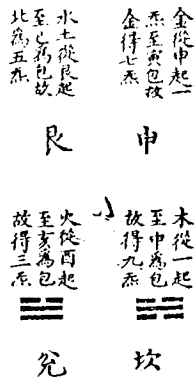 金從申起一
炁至寅包故
金得七炁
申
水土從艮起
至已為包故
北為五炁
艮
小
本從一起
至申為包
故得九炁
坎
火從酉起
至亥為包
故得三炁
兌